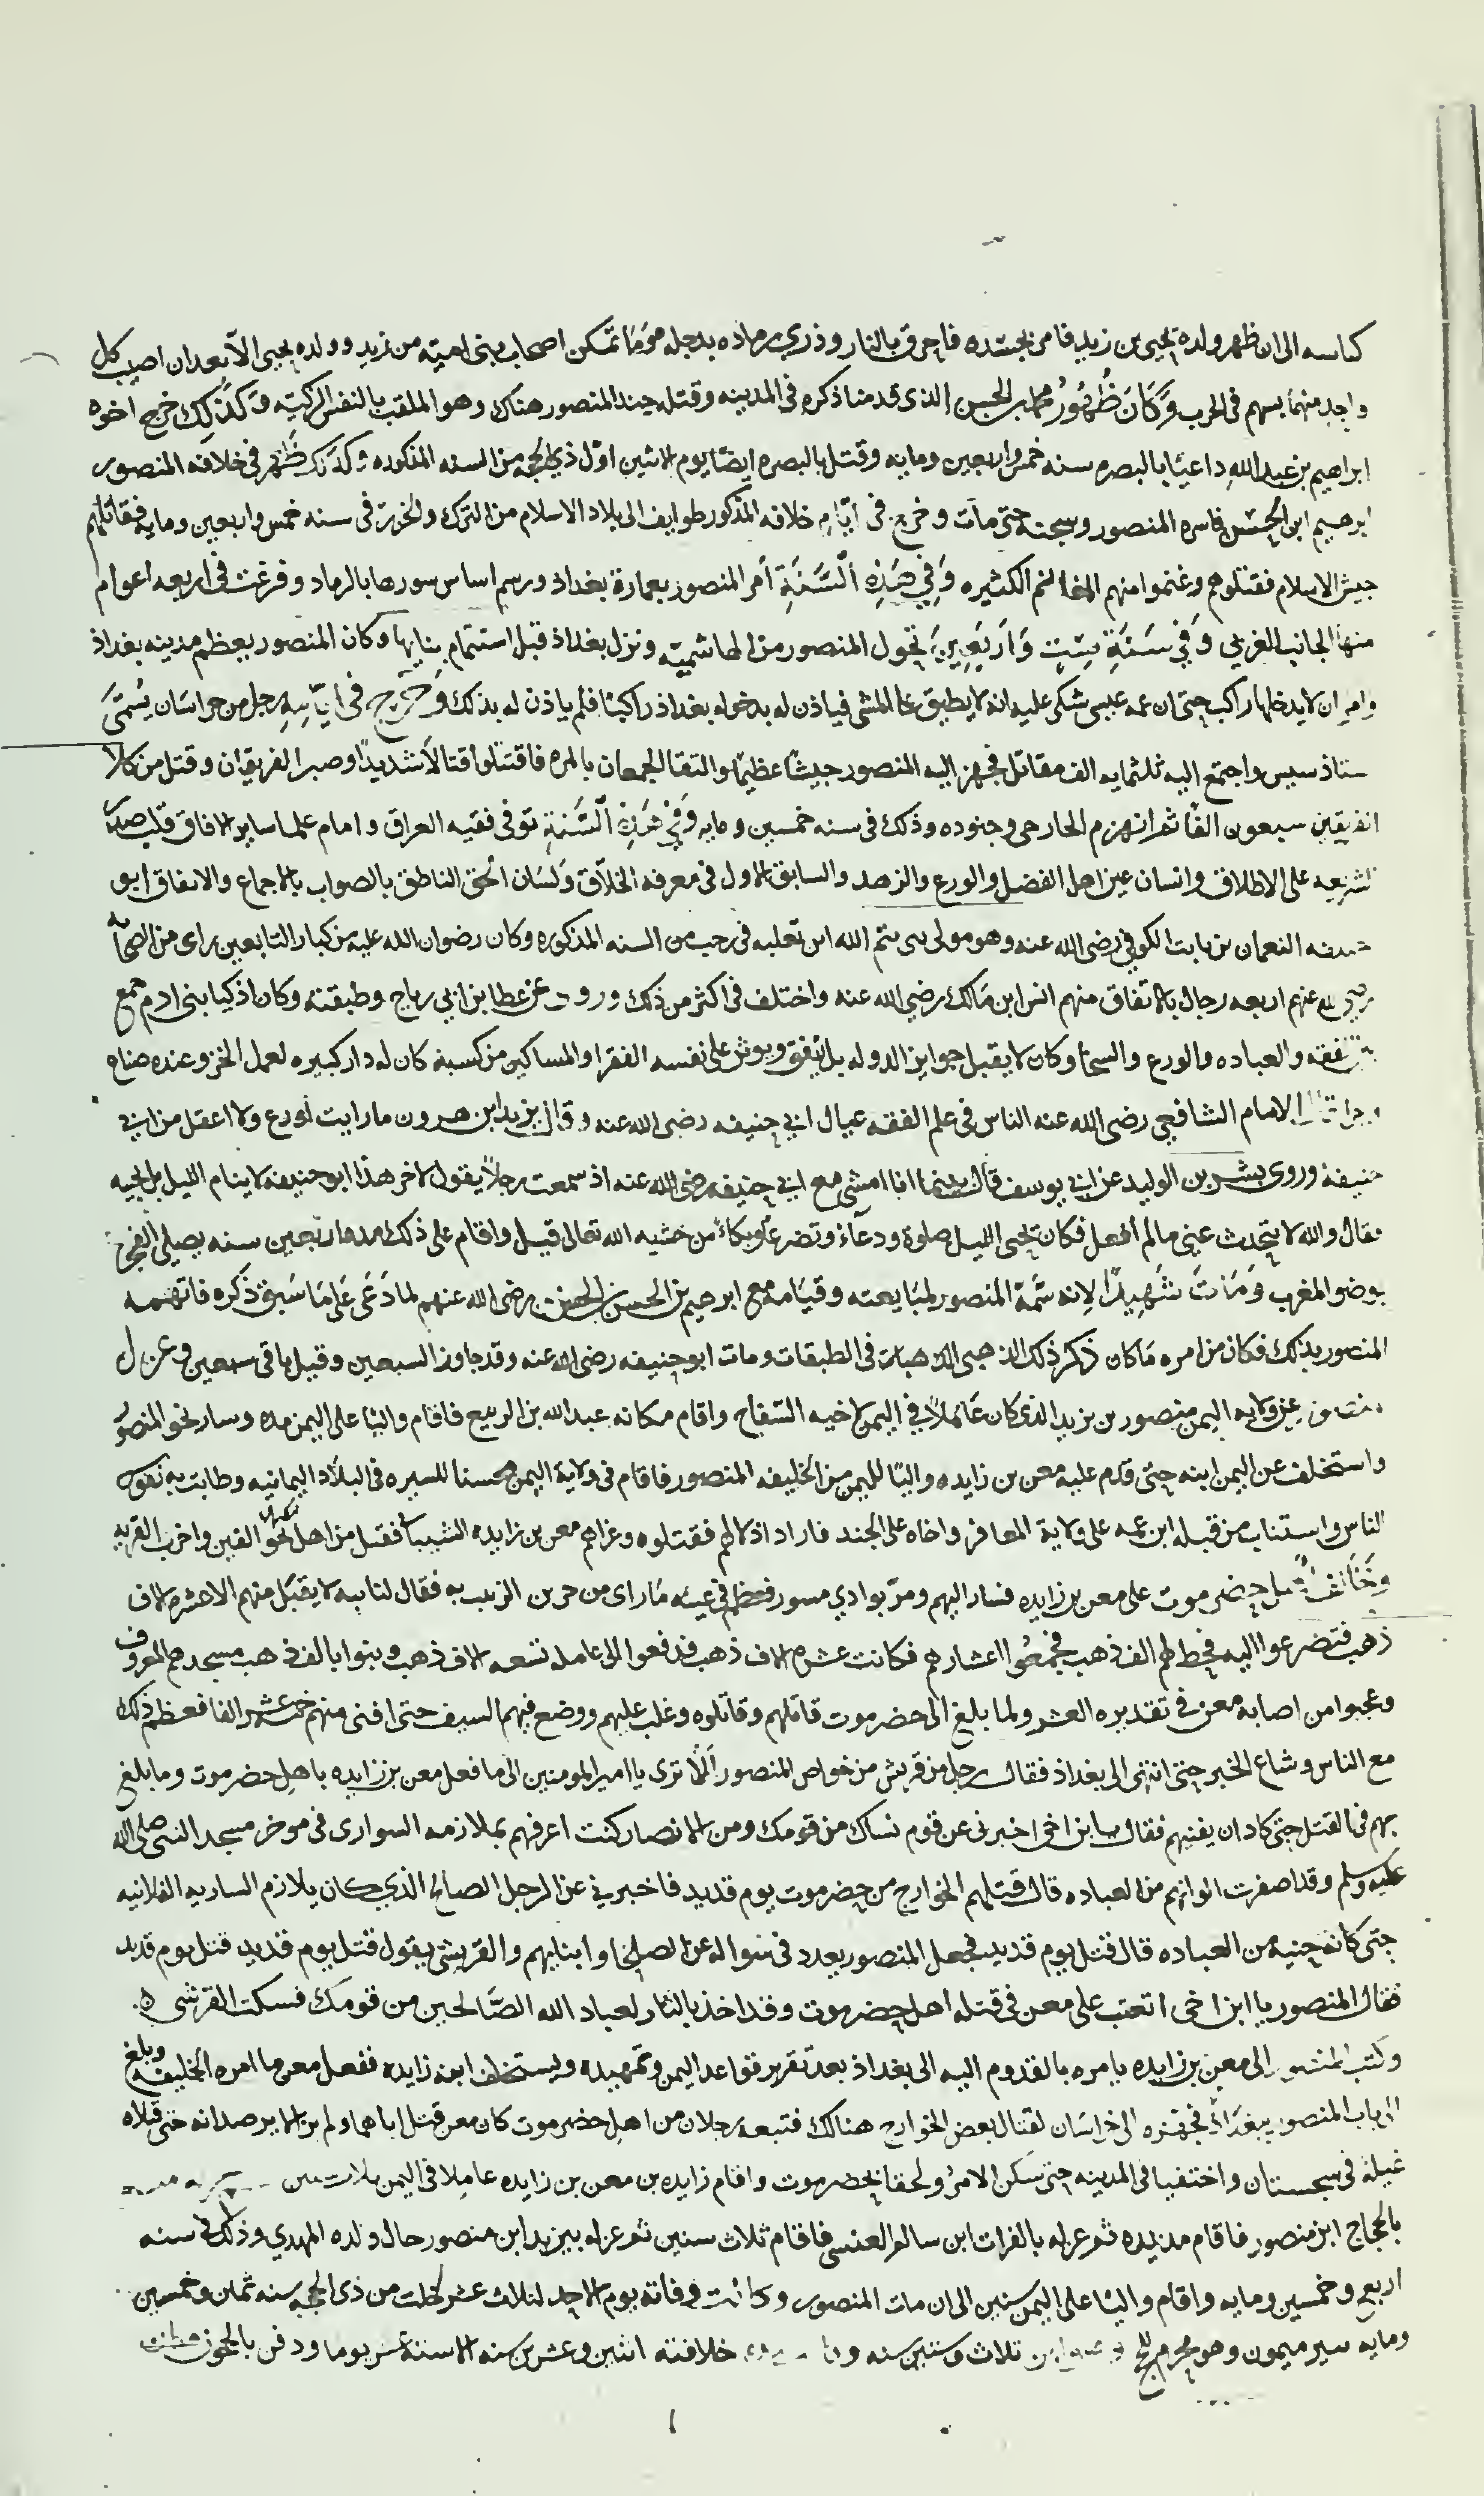 كناسه الى ان ظهر ولده يحيى بن زيد فامر بجسده فاحرق بالنار وذري رماده بدجله فما تمكن اصحاب بنى اميه من زيد وولده يحيى الا بعد ان اصيب كل
واحد منهما بسهم فى الحرب وكان ظهور محمد بن الحسن الذى قدمنا ذكره فى المدينه وقتله جند المنصور هناك وهو الملقب بالنفس الزكيه وكذلك خرج اخوه
ابراهيم بن عبد الله داعيا بالبصره سنه خمس واربعين ومايه وقتل بالبصره ايضا يوم الاثنين اول ذي الحجه من السنه المذكوره وكذلك ظهر فى خلافه المنصور
ابرهيم ابن الحسن فاسره المنصور وسجنه حتى مات وخرج فى ايام خلافه المذكور طوايف الى بلاد الاسلام من الترك والخزر فى سنه خمس واربعين ومايه فقاتلهم
جيش الاسلام فقتلوهم وغنموا منهم المغانم الكثيره وفي هذه السنة أمر المنصور بعمارة بغداذ ورسم اساس سورها بالرماد وفرغت فى اربعه اعوام
منها الجانب الغربي وفي سنة ست واربعين تحول المنصور من الهاشميه ونزل بغداذ قبل استتمام بنايها وكان المنصور يعظم مدينه بغداذ
وامر ان لا يدخلها راكب حتى ان عمه عيسى شكى عليه انه لا يطيق على المشى فياذن له بدخوله بغداذ راكبا فلم ياذن له بذلك وخرج فى ايامه رجل من خراسان يسمى
ستاذ سيس واجتمع اليه ثلثمايه الف مقاتل فجهز اليه المنصور جيشا عظيما والتقا الجمعان بالمره فاقتتلوا قتالا شديدا وصبر الفريقان وقتل من كلا
الفريقين سبعون الفا ثم انهزم الخارجى وجنوده وذلك فى سنه خمسين ومايه وفي هذه السنة توفى فقيه العراق وامام علما ساير الافاق قلب صدر
الشريعه على الاطلاق وانسان عين اهل الفضل والورع والزهد والسابق الاول فى معرفه الخلاق ولسان الحق الناطق بالصواب بالاجماع والاتفاق ابو
حنيفه النعمان بن ثابت الكوفي رضى الله عنه وهو مولى بنى تيم الله ابن ثعلبه فى رجب من السنه المذكوره وكان رضوان الله عليه من كبار التابعين راى من الصحابه
رضي الله عنهم اربعه رجال بالاتفاق منهم انس ابن مالك رضي الله عنه واختلف فى اكثر من ذلك وروى عن عطا بن ابي رباح وطبقته وكان اذكيا بنى ادم جمع
الفقه والعباده والورع والسخا وكان لا يقبل جوايز الدوله بل ينفق ويوثر على نفسه الفقرا والمساكين من كسبه كان له دار كبيره لعمل الخز وعنده صناع
الامام الشافعي رضى الله عنه الناس فى علم الفقه عيال ابي حنيفه رضى الله عنه وقال يزيد ابن هرون ما رايت اورع ولا اعقل من ابي
حنيفه وروى بشر بن الوليد عن ابي يوسف قال بينما انا امشى مع ابي حنيفه رضى الله عنه اذ سمعت رجلا يقول لاخر هذا ابو حنيفه لا ينام الليل بل يحييه
فقال والله لا يتحدث عنى مالم أفعل فكان يحيى الليل صلوة ودعاء وتضرعا وبكاء من خشيه الله تعالى قيل واقام على ذلك مده اربعين سنه يصلى الفجر
بوضو المغرب ومات شهيدا لانه سمه المنصور لمبايعته وقيامه مع ابرهيم بن الحسن بن الحسن رضى الله عنهم لما دعى على ما سبق ذكره فاتهمه
المنصور بذلك فكان من امره ما كان ذكر ذلك الذهبى فى الطبقات ومات ابو حنيفه رضى الله عنه وقد جاوز السبعين وقيل باقى سبعين وعزل
عن ولايه اليمن منصور بن يزيد الذى كان عاملا في اليمن لاخيه السفاح واقام مكانه عبد الله بن الربيع فاقام واليا على اليمن مده وسار نحو المنصور
واستخلف عن اليمن ابنه حتى قدم عليه معن بن زايده واليا لليمن من الخليفه المنصور فاقام فى ولاية اليمن محسنا للسيره فى البلاد اليمانيه وطابت به نفوس
الناس واستناب من قبله ابن عمه على ولاية المعافر واخاه على الجند فاراد اذلالهم فقتلوه وغزاهم معن بن زايده الشيبانى فقتل من اهل نحو الفين واخرب القريه
وخالف اهل حضرموت على معن بن زايده فسار اليهم ومر بوادي مسور فعظم فى عينه ما راى من حرث الزبيب به فقال لنايبه لا يقبل منهم الا عشره الاف
ذهب فتضرعوا اليه فحط لهم الف ذهب فجمعوا اعشارهم فكانت عشره الاف ذهب فدفعوا الى عامله تسعه الاف ذهب وبنوا بالف ذهب مسجدهم المعروف
وعجبوا من اصابه معن فى تقديره العشر ولما بلغ الى حضرموت قاتلهم وقاتلوه وغلب عليهم ووضع فيهم السيف حتى افنى منهم خمسة عشر الفا فعظم ذلك
مع الناس وشاع الخبر حتى انتهى الى بغداذ فقال رجل من قريش من خواص المنصور الا ترى يا امير المومنين الى ما فعل معن بن زايده باهل حضرموت وما بلغ
بهم فى القتل حتى كاد ان يفنيهم فقال يا بن اخى اخبرنى عن قوم نساك من قومك ومن الانصار كنت اعرفهم بملازمه السوارى فى موخر مسجد النبى صلى الله
عليه وسلم وقد اصفرت الوانهم من العباده قال قتلهم الخوارج من حضرموت يوم قديد فاخبرني عن الرجل الصالح الذي كان يلازم الساريه الفلانيه
حتى كانه حنيه من العباده قال قتل يوم قديد فجعل المنصور يعدد فى سواله عن الصلحا وابنايهم والقريشى يقول قتل يوم قديد قتل يوم قديد
فقال المنصور يا ابن اخى اتعتب على معن فى قتله اهل حضرموت وقد اخذ بالثار لعباد الله الصالحين من قومك فسكت القرشى
وكتب المنصور الى معن بن زايده يامره بالقدوم اليه الى بغداذ بعد تقرير قواعد اليمن وتمهيده ويستخلف ابنه زايده ففعل معن ما امره الخليفه وبلغ
الى باب المنصور ببغداذ فجهزه الى خراسان لقتال بعض الخوارج هنالك فتبعه رجلان من اهل حضرموت كان معن قتل اباهما ولم يزالا يرصدانه حتى قتلاه
غيلة فى سجستان واختفيا فى المدينه حتى سكن الامر ولحقا بحضرموت واقام زايده بن معن بن زايده عاملا فى اليمن ثلاث سنين
بالحجاج ابن منصور فاقام مديده ثم عزله بالفرات ابن سالم العنسى فاقام ثلاث سنين ثم عزله بيزيد ابن منصور خال ولده المهدي وذلك فى سنه
اربع وخمسين ومايه واقام واليا على اليمن سنين الى ان مات المنصور وكانت وفاته يوم الاحد لثلاث عشر خلت من ذى الحجه سنه ثمان وخمسين
ومايه ببير ميمون وهو محرم للحج ثلاث وستين سنه خلافته اثنين وعشرين سنه الا ستة عشر يوما ودفن بالحجون